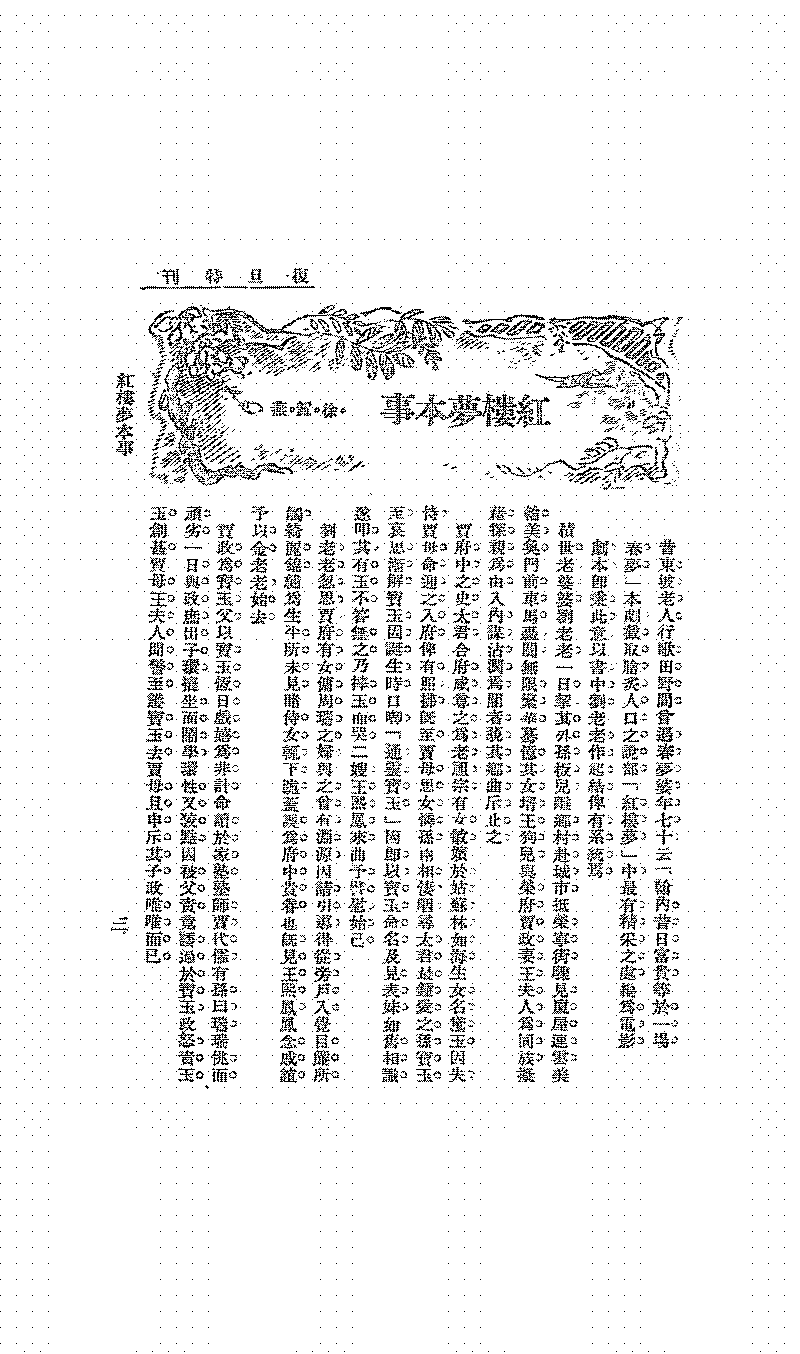 復旦特刊
紅樓夢本事
徐
昔東坡老人行歌田野間曾遇春夢婆年七十云「翰內昔日富貴等於一場
春夢」本劇截取膾炙人口之說部「紅樓夢」中最有精采之處編為電影
劇本即秉此意以書中劉老老作起結俾有系統焉
積世老婆婆劉老老一日挈其外孫板兒離鄉村赴城市抵榮寧街瞻見廈屋連雲美
輪美奐門前車馬喧闐無限繁華驀憶其女壻王狗兒與榮府賈政妻王夫人為同族擬
藉探親為由入內謀沾潤為閽者藐其鄉曲斥止之
賈府中之史太君合府咸尊之為老祖宗有女敏嬪於姑蘇林如海生女名黛玉因失
恃賈母命迎之入府俾有照拂既至賈母思女憐孫兩相淒咽尋太君最鍾愛之孫寶玉
至哀思漸解寶玉因誕生時口啣「通靈寶玉」因即以寶玉命名及見表妹如舊相識
遂叩其有玉不答無之乃摔玉而哭二嫂王熙鳳來曲予譬慰始已
劉老老忽思賈府有女傭周瑞之婦與之曾有淵源因請引導得從旁戶入覺目簾所
觸綺麗錦繡為生平所未見睹侍女輒下禮蓋誤為府中貴眷也既見王熙鳳鳳念戚誼
予以金老老始去
賈政為寶玉父以寶玉恆日戲嬉為非計命讀於家塾塾師賈代儒有孫曰瑞瑞佻而
頑劣一日與政庶出子環接坐而鬩學環性又狡黠因被父責竟諉過於寶玉政怒責玉
玉創甚賈母王夫人聞訊至護寶玉去賈母且申斥其子政唯唯而已
紅樓夢本事
三